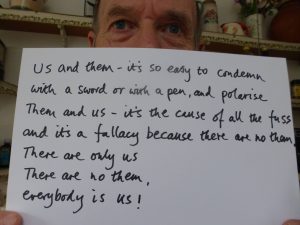 Us and them - it's so easy to condemn
with a sword or with a pen, and polarise
Them and us - it's the cause of all the fuss
and it's a fallacy because there are no them
There are only us
There are no them,
everybody is us!